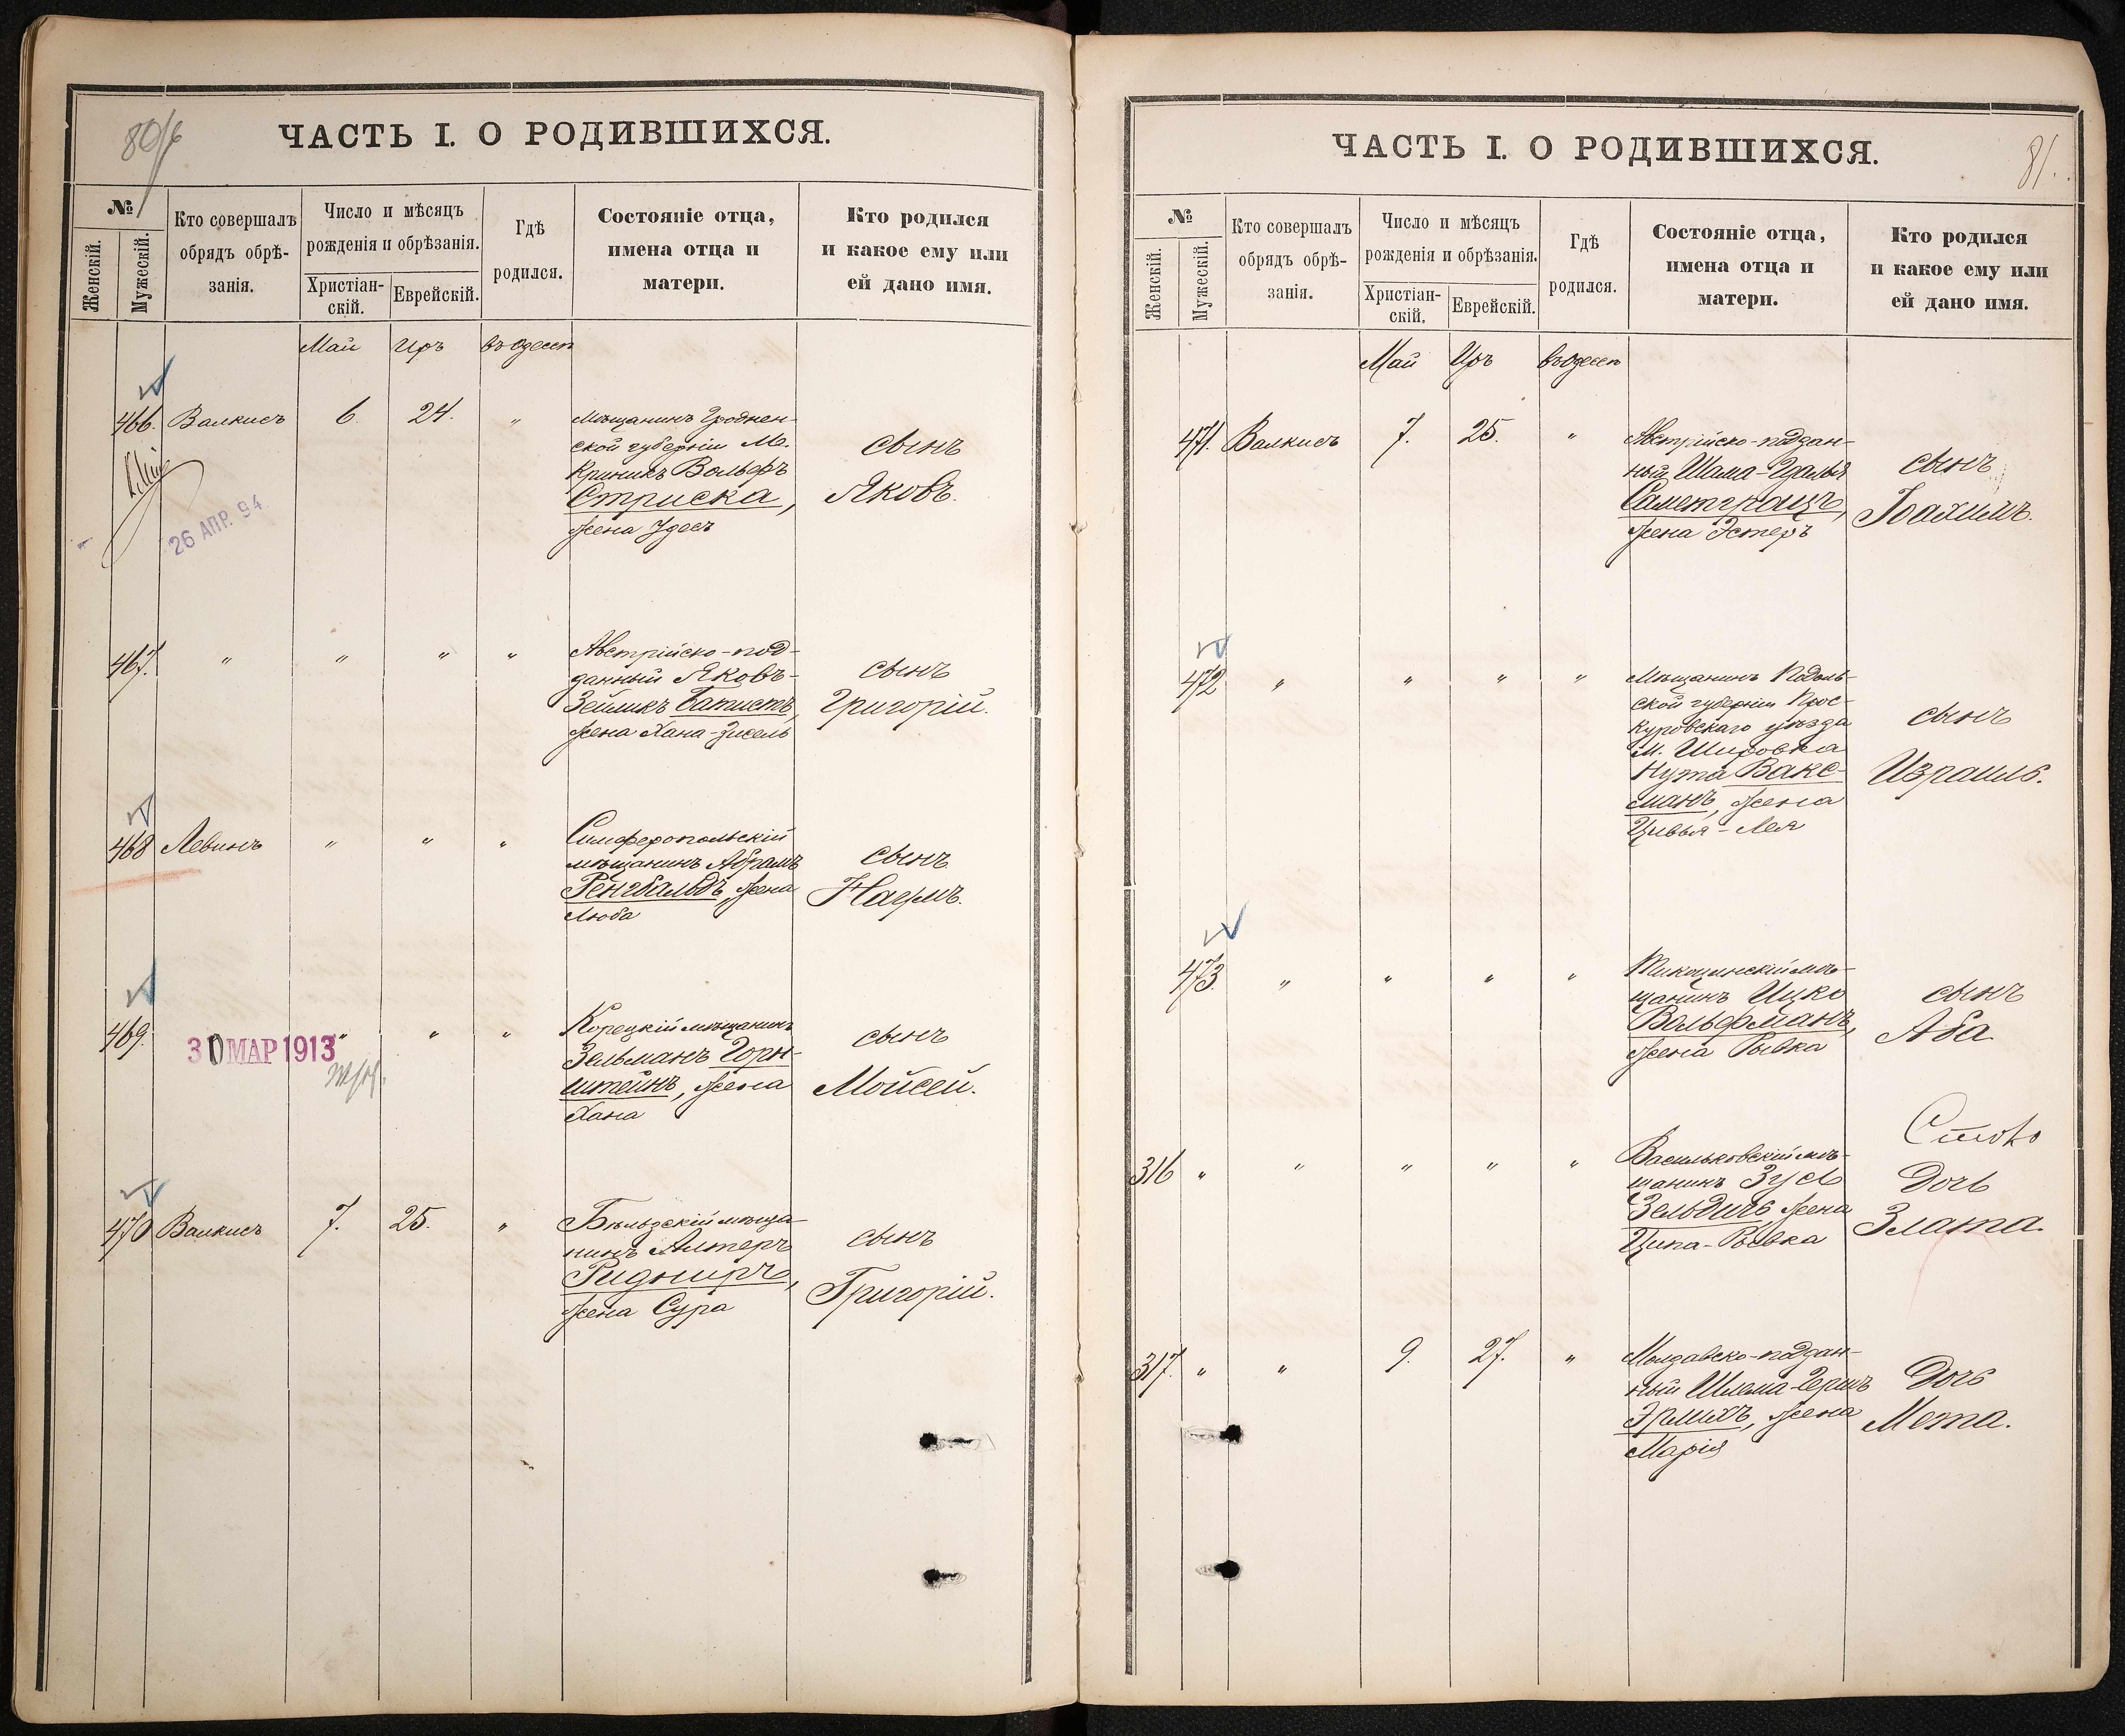 80/б
ЧАСТЬ I. О РОДИВШИХСЯ.
№
Женскій.
Мужескій.
Кто совершалъ
обрядъ обрѣ-
занія.
Число и мѣсяцъ
рожденія и обрѣзанія.
Христіан-
скій.
Еврейскій.
Гдѣ
родился.
Состояніе отца,
имена отца и
матери.
Кто родился
и какое ему или
ей дано имя.
Май Иръ въ Одессѣ
466. Валкисъ 6. 24. "
Мѣщанинъ Гроднен-
ской губерніи М.
Криникъ Вольфъ
Стриска,
жена Удесъ
сынъ
Яковъ.
26 АПР. 94.
467. " " " "
Австрійско-под-
данный Яковъ-
Зейликъ Батистъ,
жена Хана-Зисель
сынъ
Григорій.
468 Левинъ " " "
Симферопольскій
мѣщанинъ Абрамъ
Ренгбальдъ, жена
Люба
сынъ
Наумъ.
469. " " "
30 МАР 1913
Корецкій мѣщанинъ
Зельманъ Горн-
штейнъ, жена
Хана
сынъ
Мойсей.
470 Валкисъ 7. 25. "
Бѣльзскій мѣща-
нинъ Алтеръ
Ридниръ,
жена Сура
сынъ
Григорій.
81.
ЧАСТЬ I. О РОДИВШИХСЯ.
№
Женскій.
Мужескій.
Кто совершалъ
обрядъ обрѣ-
занія.
Число и мѣсяцъ
рожденія и обрѣзанія.
Христіан-
скій.
Еврейскій.
Гдѣ
родился.
Состояніе отца,
имена отца и
матери.
Кто родился
и какое ему или
ей дано имя.
Май Иръ въ Одессѣ
471. Валкисъ 7. 25. "
Австрійско-поддан-
ный Шама-Идалья
жена Эстеръ
сынъ
Іоахимъ.
472 " " " "
Мѣщанинъ Подоль-
ской губерніи Прос-
куровскаго уѣзда
М. Шаровка
Нута Вакс-
манъ, жена
Цивья-Лея
сынъ
Израиль.
473. " " " "
щанинъ Ицко
Вольфманъ,
жена Рывка
сынъ
Аба
316 " " " " "
Васильковскій мѣ-
щанинъ Зусь
Зельдичъ, жена
Ципа-Рывка
Дочь
Злата.
317. " " 9. 27. "
Молдавско-поддан-
ный Шлема-Гершъ
Эрлихъ, жена
Марія
Дочь
Мета.